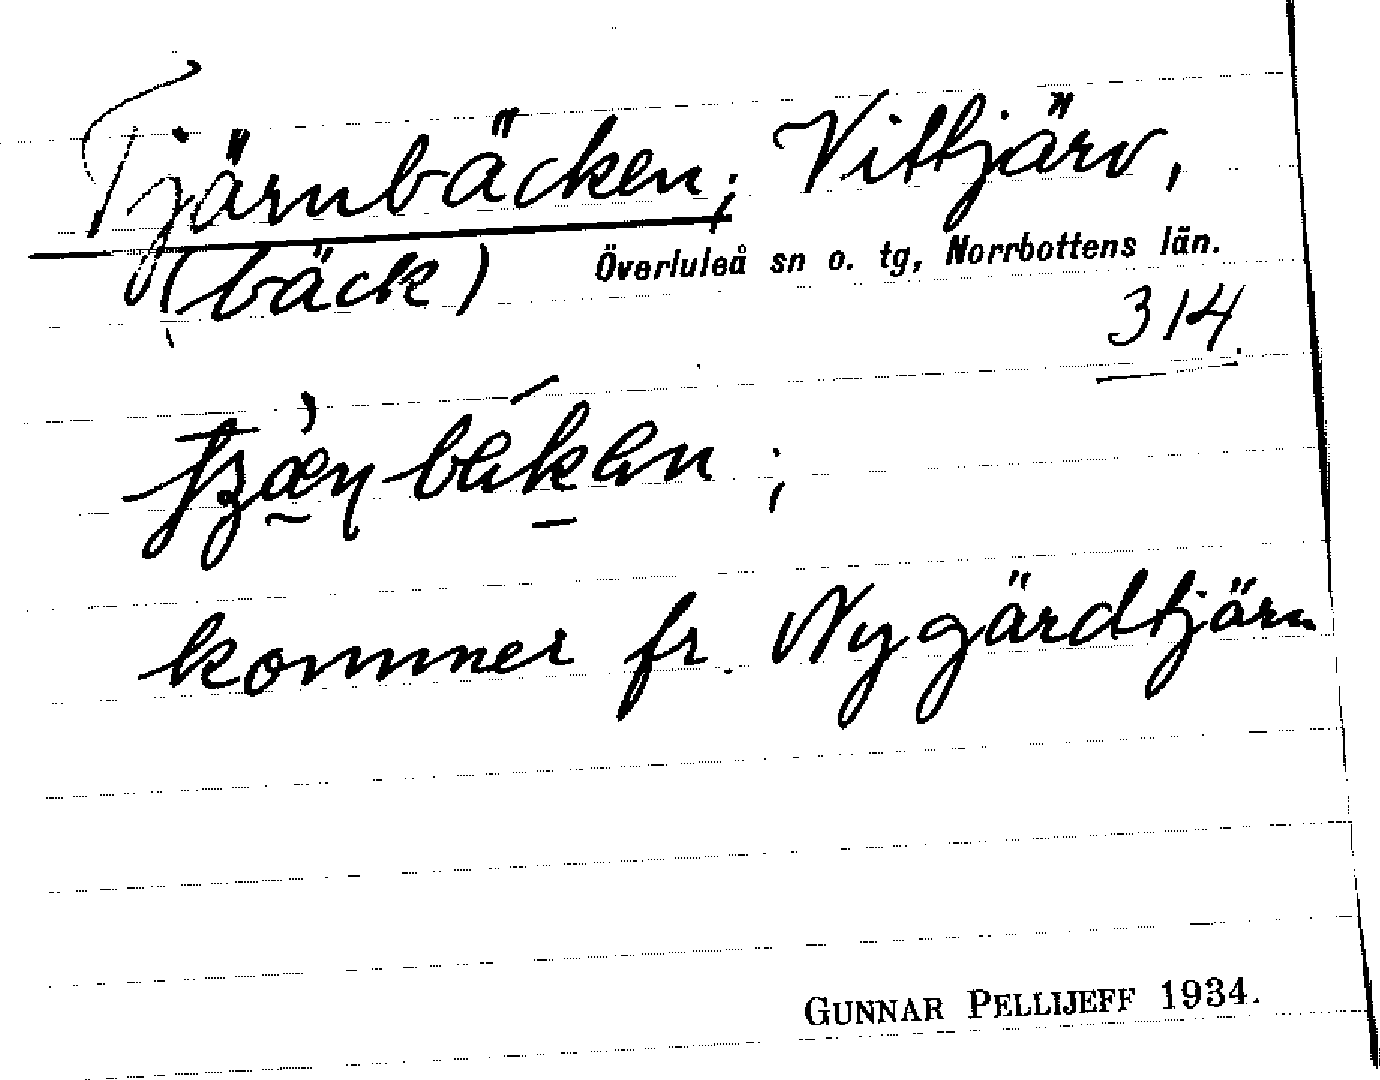 Tjärnbäcken; Vittjärv,
(bäck) Överluleå sn o. tg, Norrbottens län.
314
kommer fr. Nygärdtjärn
GUNNAR PELLIJEFF 1934.